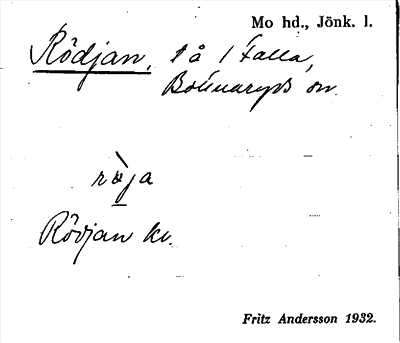 Mo hd., Jönk. l.
Rödjan, 1 å 1 Falla,
Bottnaryds sn.
röja
Rödjan kv.
Fritz Andersson 1932.